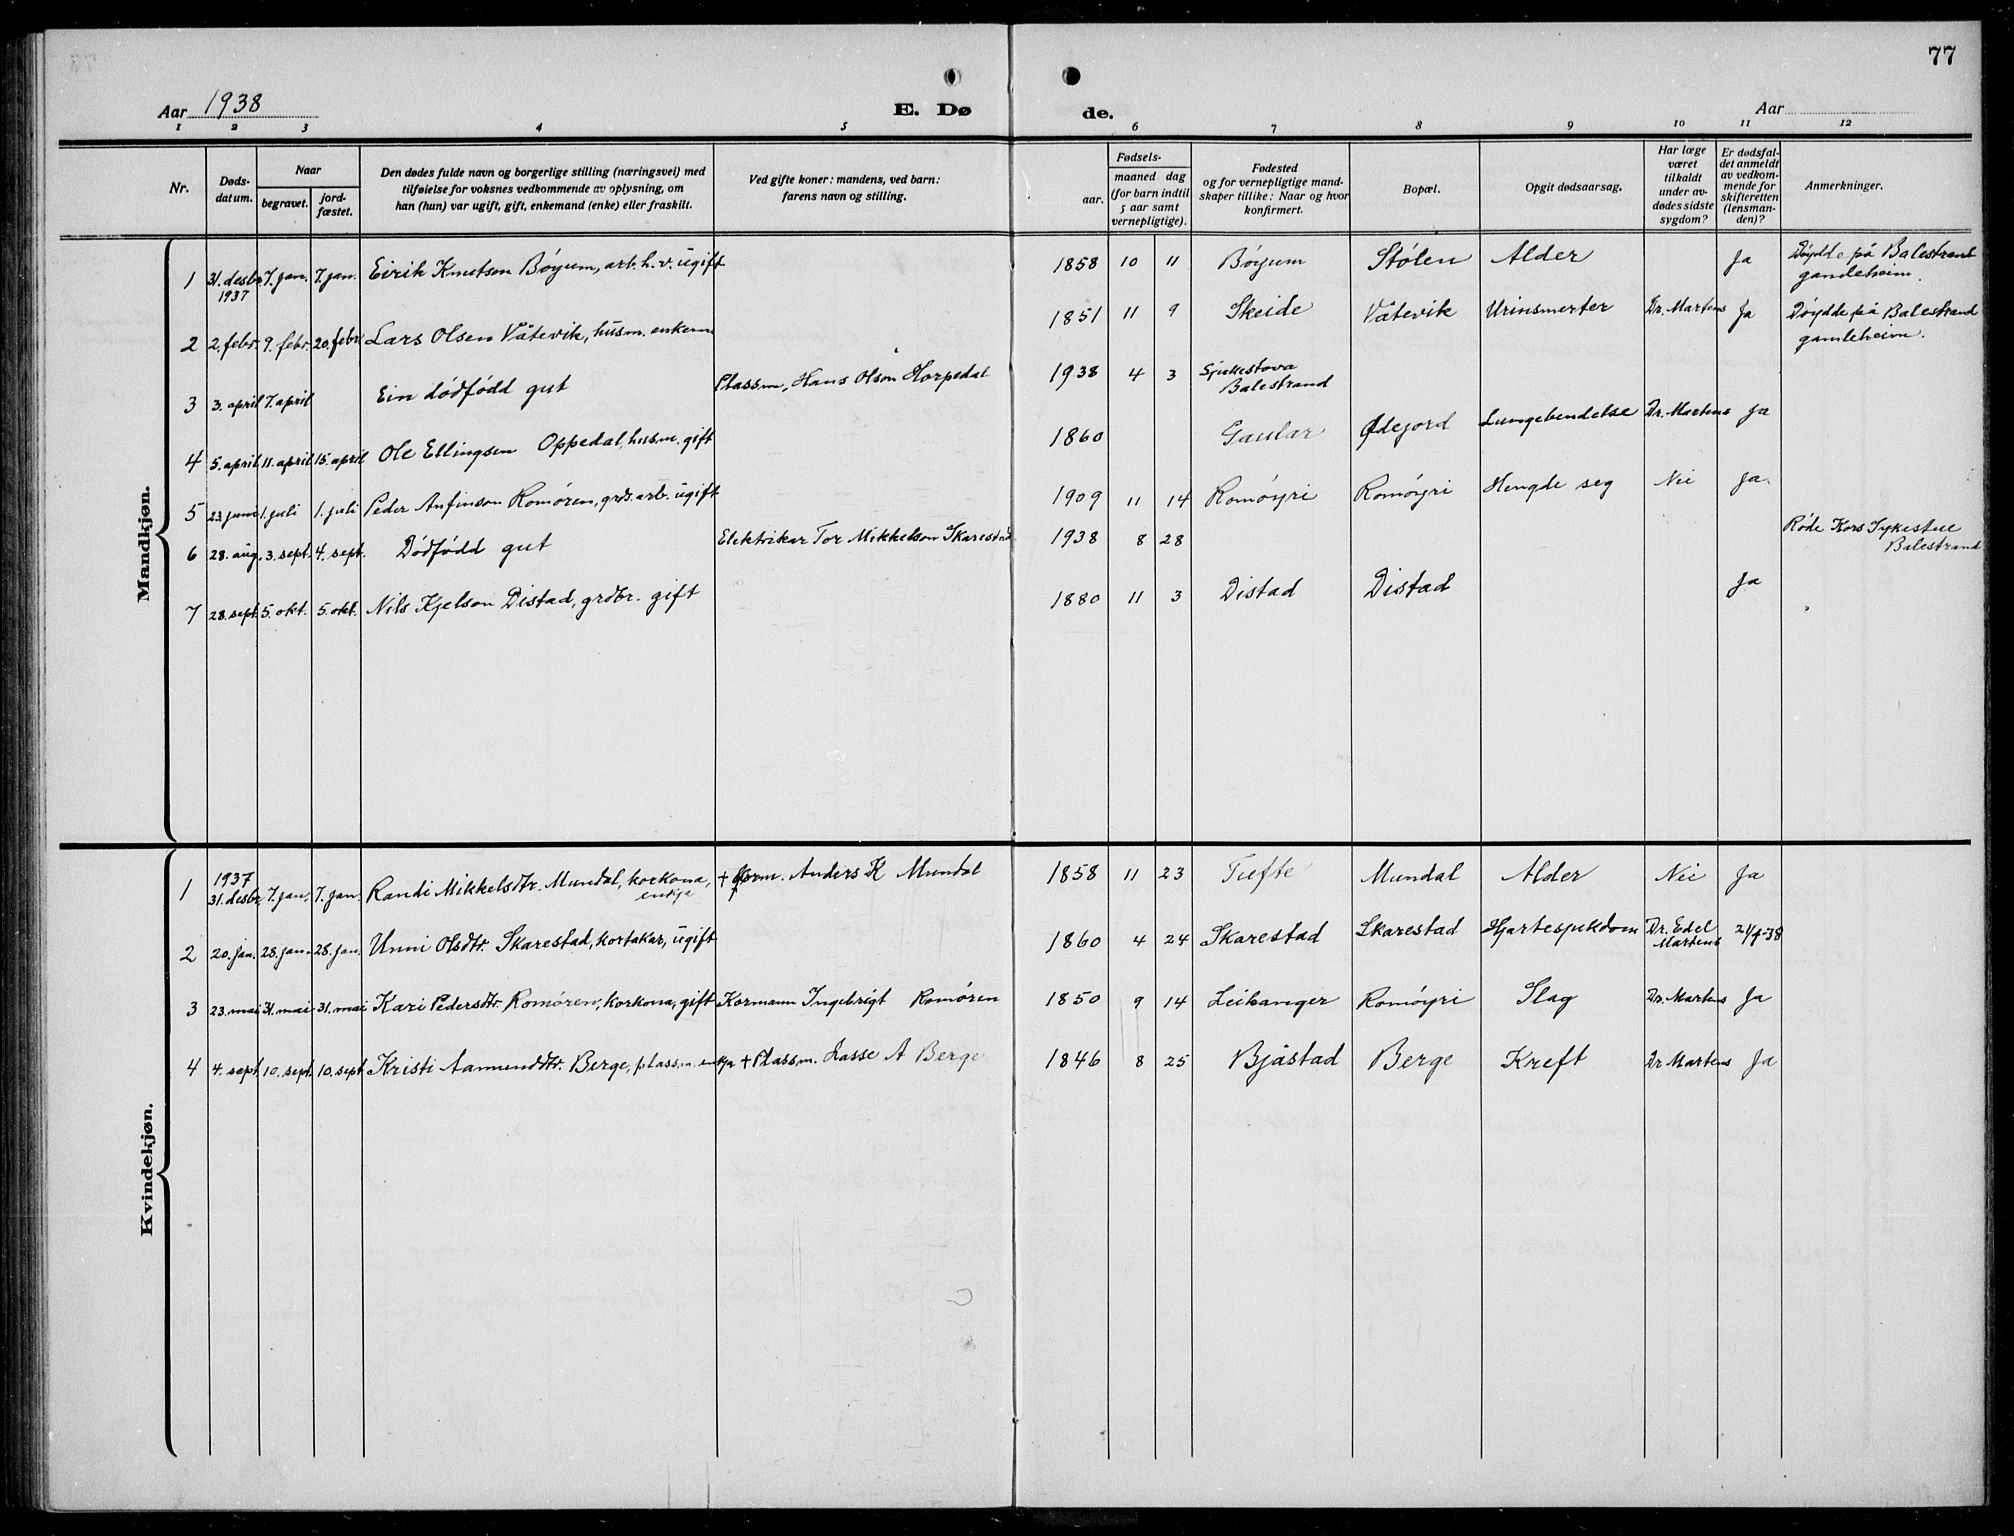 77
Aar 1938 E. Dø de. Aar
1 2 3 4 5 6 7 8 9 10 11 12
Nr. Døds-datum. Naar begravet. jord-fæstet. Den dødes fulde navn og borgerlige stilling (næringsvei) med tilføielse for voksnes vedkommende av oplysning, om han (hun) var ugift, gift, enkemand (enke) eller fraskilt. Ved gifte koner: mandens, ved barn: farens navn og stilling. Fødsels- aar. maaned dag (for barn indtil 5 aar samt vernepligtige). Fødested og for vernepligtige mandskaper tillike: Naar og hvor konfirmert. Bopæl. Opgit dødsaarsag. Har læge været tilkaldt under avdødes sidste sygdom? Er dødsfaldet anmeldt av vedkommende for skifteretten (lensmanden)? Anmerkninger.
Mandkjøn.
1 31. desbr. 1937 7. jan. 7. jan. Eirik Knutsen Bøyum, arb. h. v. ugift 1858 10 11 Bøyum Stølen Alder Ja Døydde på Balestrand gamleheim.
2 2. febr. 9. febr. 20. febr. Lars Olsen Våtevik, husm. enkem 1851 11 9 Skeide Våtevik Urinsmerter Dr. Martens Ja Døydde på Balestrand gamleheim.
3 3. april 7. april Ein dødfødd gut Plassm, Hans Olson Horpedal 1938 4 3 Sjukestova Balestrand
4 5. april 11. april 15. april Ole Ellingsen Oppedal, husm. gift 1860 Gaular Ødejord Lungebendelse Dr. Martens Ja
5 23. juni 1. juli 1. juli Peder Anfinson Romøren, grdr. arb. ugift 1909 11 14 Romøyri Romøyri Hengde seg Nei Ja.
6 28. aug. 3. sept. 4. sept. Dødfødd gut Elektrikar Tor Mikkelson Skarestad 1938 8 28 Røde Kors Sykestue Balestrand
7 28. sept. 5. okt. 5. okt. Nils Kjelson Distad, grdbr. gift 1880 11 3 Distad Distad Ja
Kvindekjøn.
1 1937 31. desbr. 7. jan. 7. jan. Randi Mikkelsdtr. Mundal, korkona, enkja + Korm. Anders K Mundal 1858 11 23 Tufte Mundal Alder Nei Ja
2 20. jan. 28. jan. 28. jan. Unni Olsdtr. Skarestad, kortakar, ugift 1860 4 24 Skarestad Skarestad Hjartesjukdom Dr. Edel Martens 21/1-38
3 23. mai 31. mai 31. mai Kari Pedersdtr. Romøren, korkona, gift Kormann Ingebrigt Romøren 1850 9 14 Leikanger Romøyri Slag Dr. Martens Ja
4 4. sept. 10. sept. 10. sept Kristi Aamunddtr. Berge, plassm. enkja + Plassm. Lasse A Berge 1846 8 25 Bjåstad Berge Kreft Dr Martens Ja